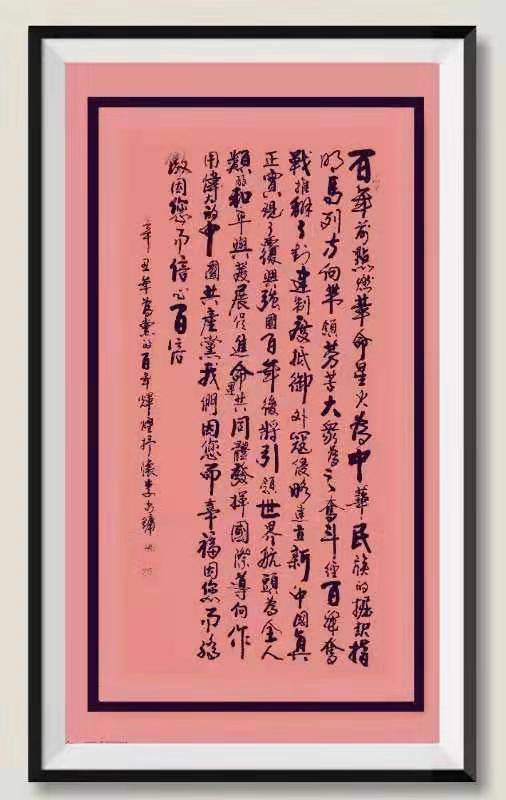 百年前點燃革命星火為中華民族的掘起指
明馬列方向带領劳苦大衆為之奮斗經百年奮
戰推翻了封建制度抵御外寇侵略建立新中國真
正實現了復興強國百年後將引領世界航頭為全人
類的和平與發展促進命運共同體發揮國際導向作
用偉大的中國共產黨我們因您而幸福因您而驕
傲因您而信心百倍
辛丑年為黨的百年輝煌抒懷李